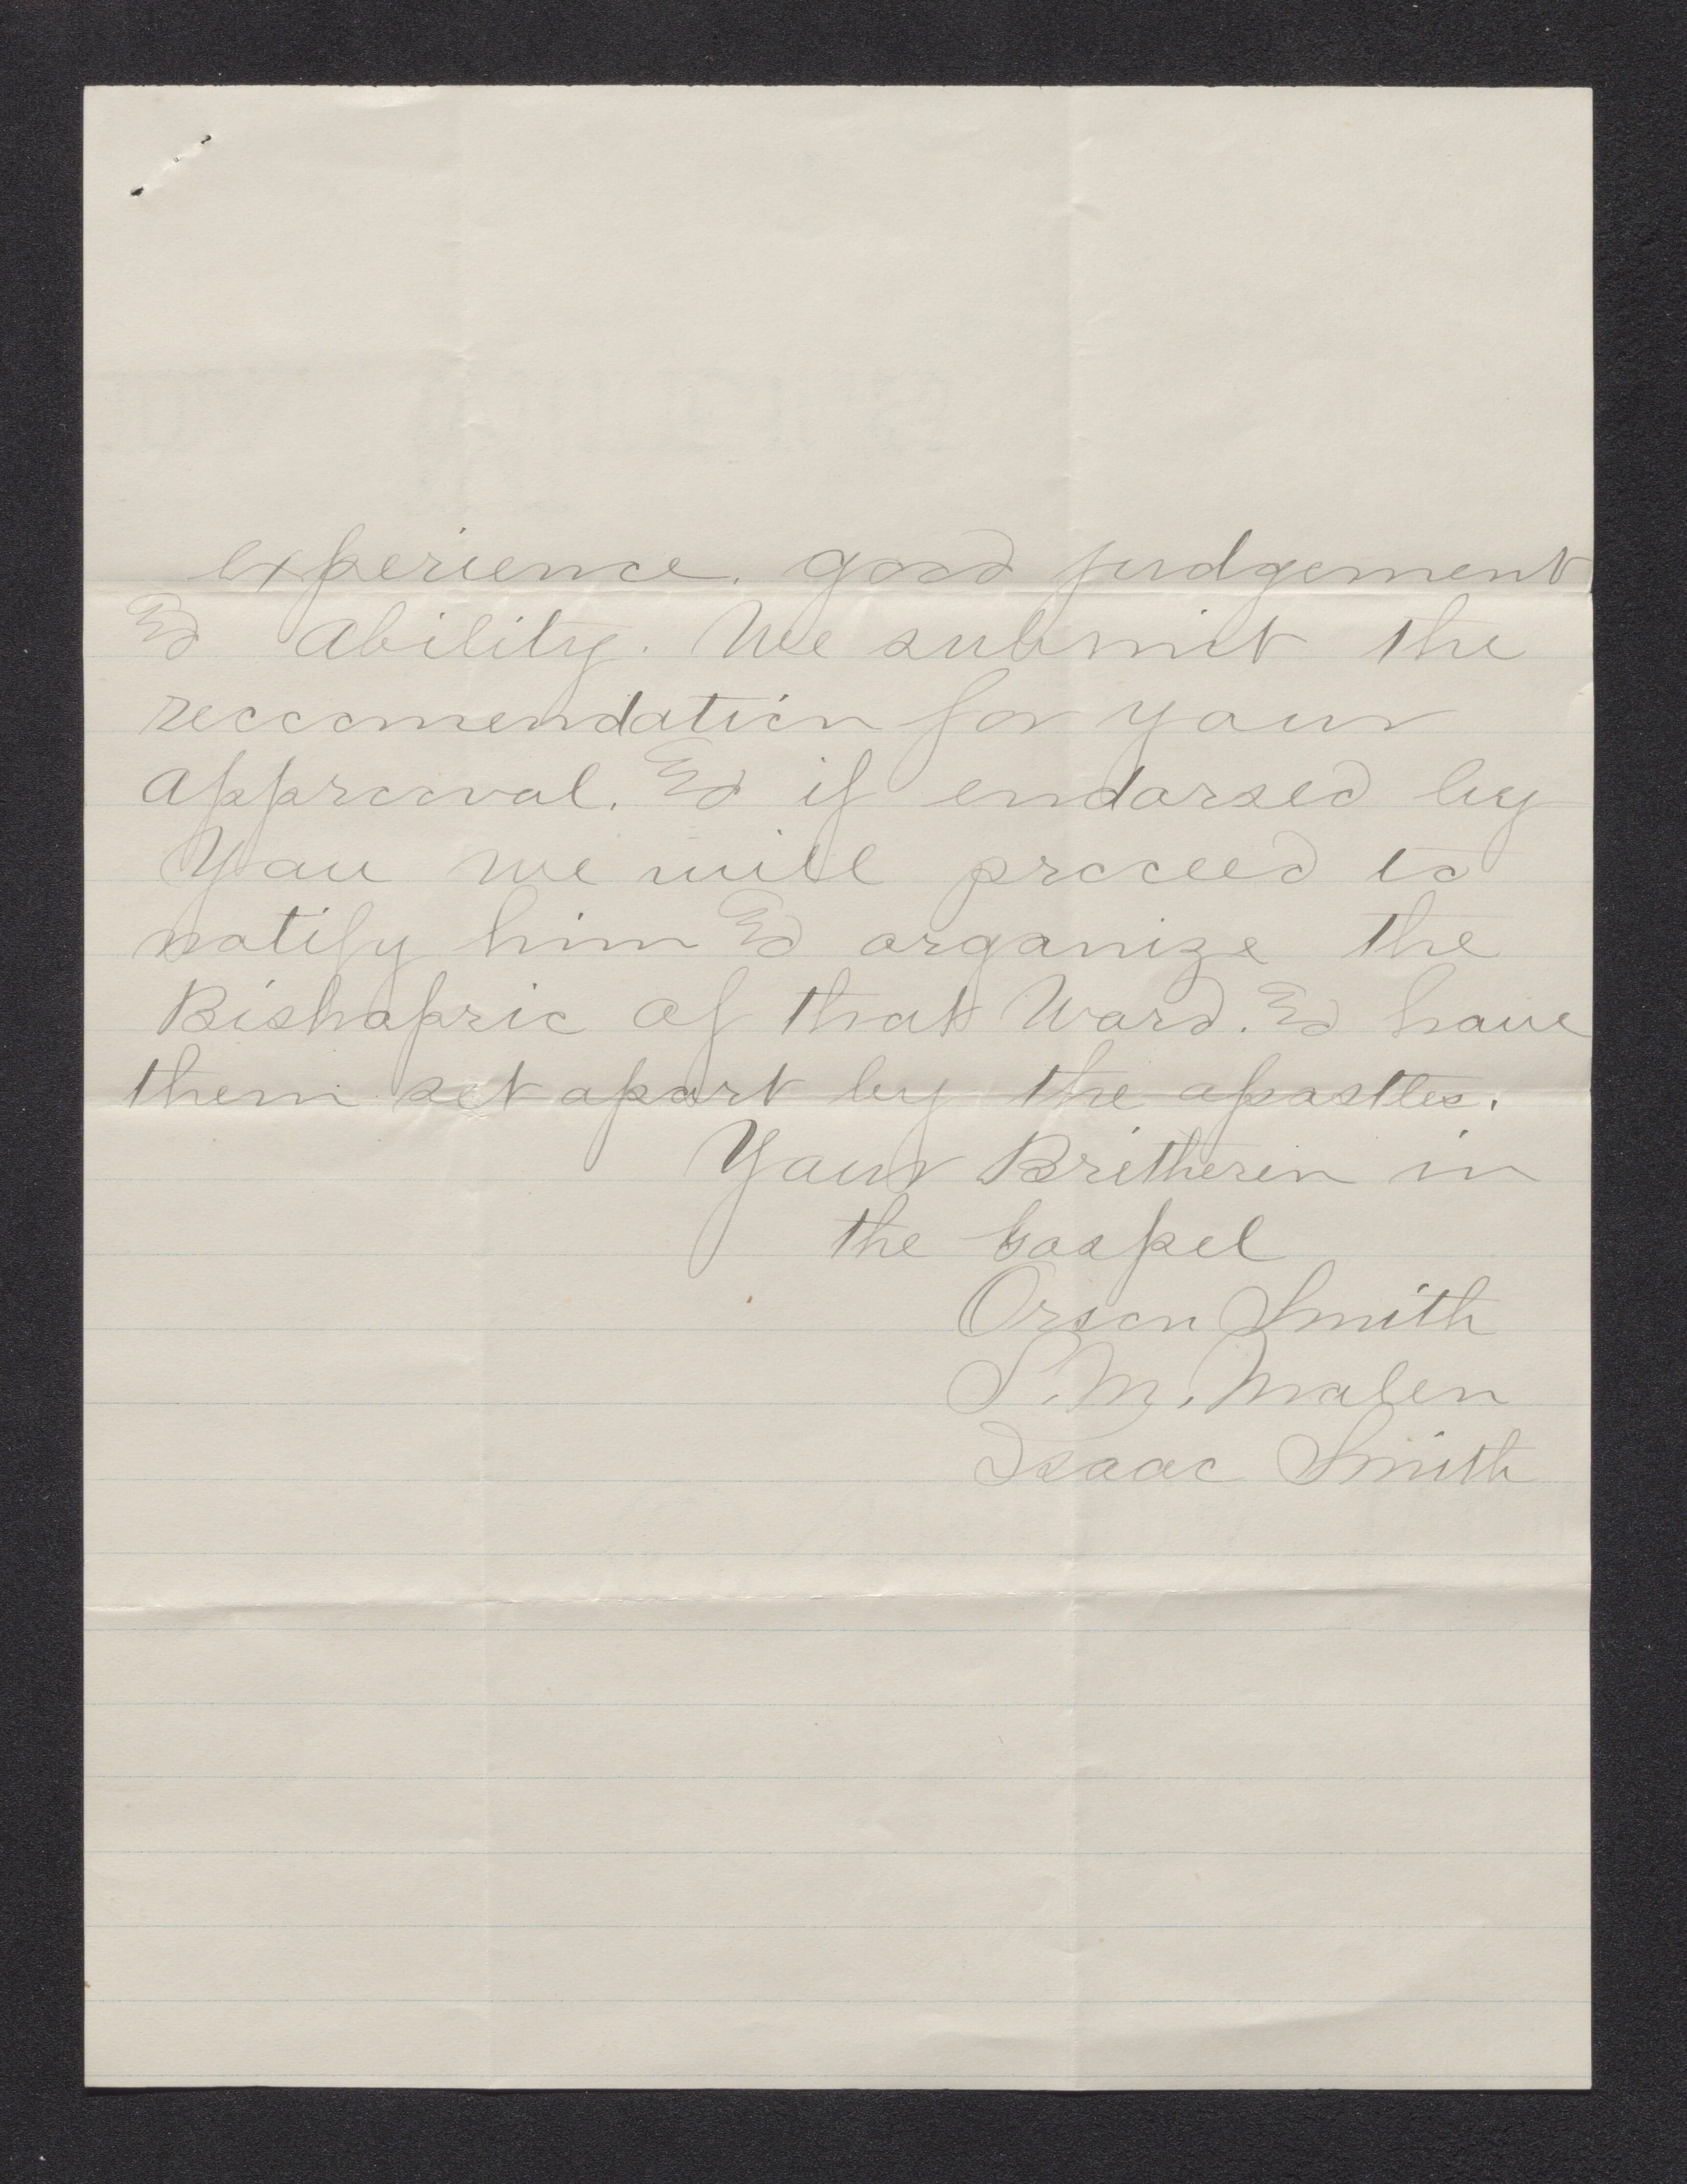 experience. good judgement
& ability. We submit the
reccomendation for your
approoval. & if endorsed by
You we will proceed to
notify him & organize the
Bishopric of that Ward. & have
them set apart by the apostles.
Your Britheren in
the Gospel
Orson Smith
S. M. Molen
Isaac Smith